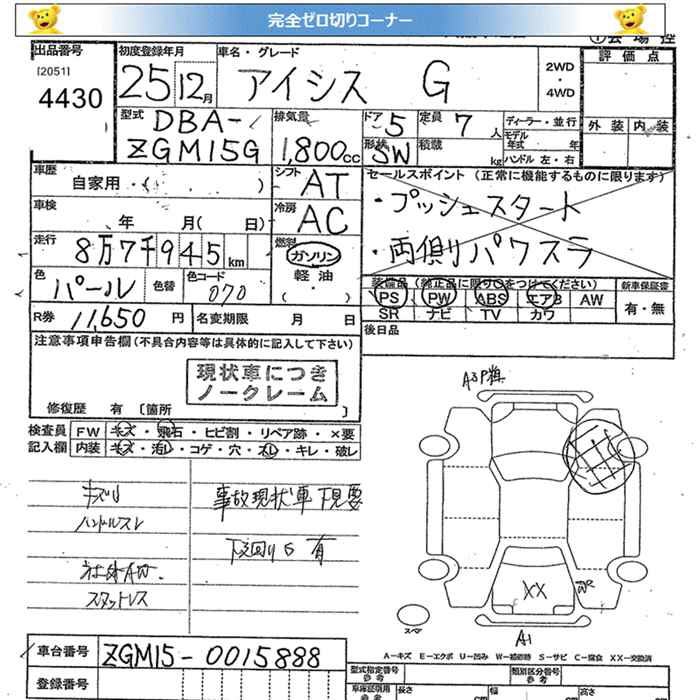 完全ゼロ切りコーナー
出品番号 初度登録年月 車名・グレード
[2051] 4430 25 12月 アイシス G 2WD・4WD
評価点
型式 DBA-ZGM15G 排気量 1,800cc ドア 5 定員 7人 ディーラー・並行
形状 SW 積載 kg モデル年式 年 ハンドル 左・右 外装 内装
車歴 自家用・( ) シフト AT セールスポイント(正常に機能するものに限ります)
車検 年 月( 日) 冷房 AC ・プッシュスタート
走行 8万7千945km 燃料 ガソリン 軽油 ・両側パワスラ
色 パール 色替 色コード 070
装備品(純正品に限り○をつけてください) 新車保証書
PS PW ABS エアB AW 有・無
SR ナビ TV カワ
R券 11,650円 名変期限 月 日 後日品
注意事項申告欄(不具合内容等は具体的に記入して下さい)
現状車につき
ノークレーム
修復歴 有 [箇所 ]
検査員 FW キズ・飛石・ヒビ割・リペア跡・×要
記入欄 内装 キズ・汚レ・コゲ・穴・スレ・キレ・破レ
キズリ 事故現状車 下見要
ハンドルスレ
下回りS 有
社外AW.
スタットレス
XX
スペア
A1
A-キズ E-エクボ U-凹み W-補修跡 S-サビ C-腐食 XX-交換済
車台番号 ZGM15-0015888 型式指定番号 参考 類別区分番号 参考
登録番号 長さ cm 幅 cm 高さ cm